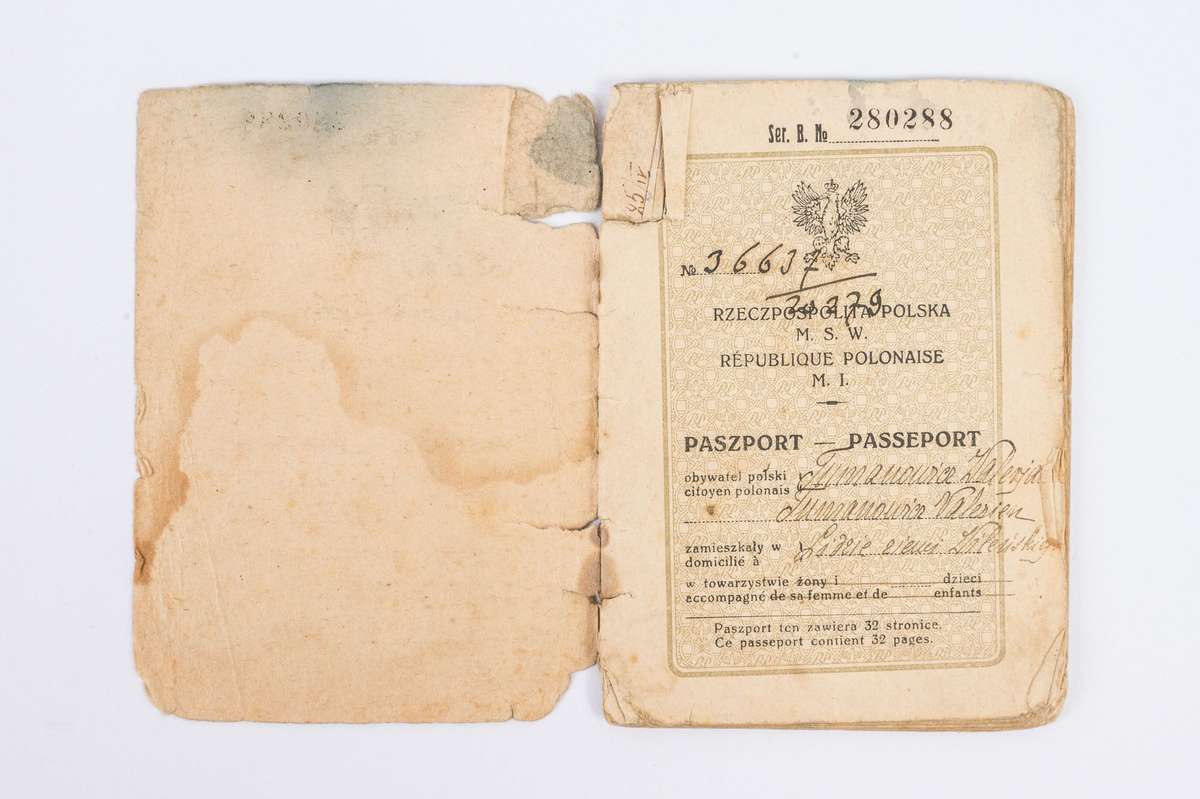 Ser. B. № 280288
№ 36637
20279
RZECZPOSPOLITA POLSKA
M. S. W.
RÉPUBLIQUE POLONAISE
M. I.
PASZPORT — PASSEPORT
obywatel polski Tumanowicz Walerjan
citoyen polonais
Tumanowicz Valerien
zamieszkały w Lidzie ziemi Wileńskiej
domicilié à
w towarzystwie żony i dzieci
accompagné de sa femme et de enfants
Paszport ten zawiera 32 stronice.
Ce passeport contient 32 pages.